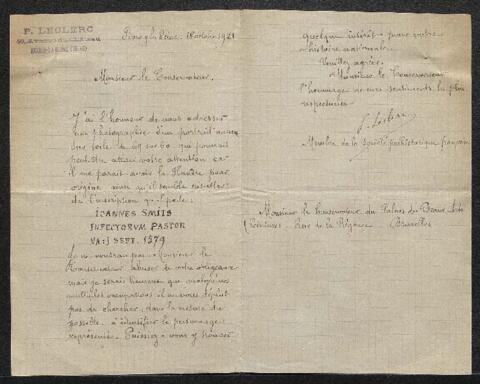 P. LECLERC
Bourg la Reine 18 octobre 1921
Monsieur le Conservateur,
J'ai l'honneur de vous adresser
une photographie d'un portrait ancien
sur toile de 69 sur 60 qui pourrait
peut être attirer votre attention car
il me parait avoir la Flandre pour
origine ainsi qu'il semble résulter
de l'inscription qu'il porte:
IOANNES SMIIS
INFECTORVM PASTOR
VA:J SEPT. 1579
Je ne voudrais pas Monsieur le
Conservateur abuser de votre obligeance
mais je serais heureux que malgré vos
multiples occupations il ne vous déplut
pas de chercher, dans la mesure du
possible, à identifier le personnage
représenté. Puissiez-vous y trouver
quelque intérêt pour votre
histoire nationale.
Veuillez agréer,
Monsieur le Conservateur
l'hommage de mes sentiments les plus
respectueux
P. Leclerc
Membre de la Société préhistorique française
Monsieur le Conservateur du Palais des Beaux Arts
(Peintures) Rue de la Régence Bruxelles